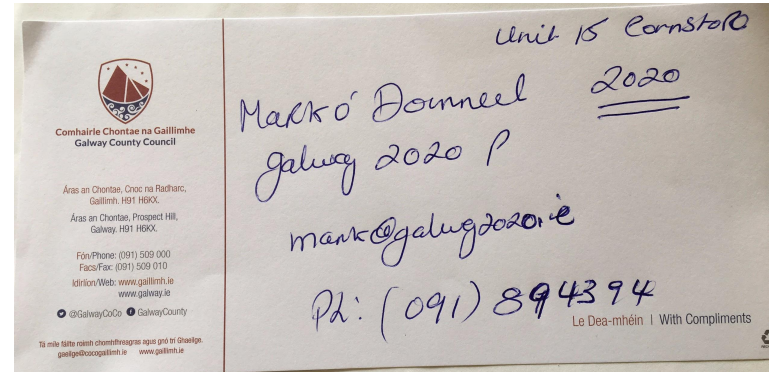 Comhairle Chontae na Gaillimhe
Galway County Council
Áras an Chontae, Cnoc na Radharc,
Gaillimh. H91 H6KX.
Áras an Chontae, Prospect Hill,
Galway. H91 H6KX.
Fón/Phone: (091) 509 000
Facs/Fax: (091) 509 010
Idirlíon/Web: www.gaillimh.ie
www.galway.ie
@GalwayCoCo GalwayCounty
Tá míle fáilte roimh chomhfhreagras agus gnó trí Ghaeilge.
gaeilge@cocogaillimh.ie www.gaillimh.ie
Unit 15 Cornstore
2020
Mark Ó Domneel
Galway 2020 P
mark@galway2020.ie
Ph: (091) 894394
Le Dea-mhéin | With Compliments